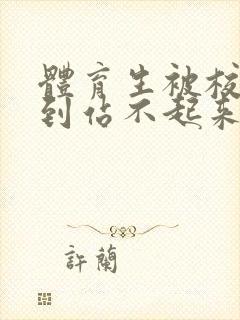 體育生被校
到佔不起來
許蘭